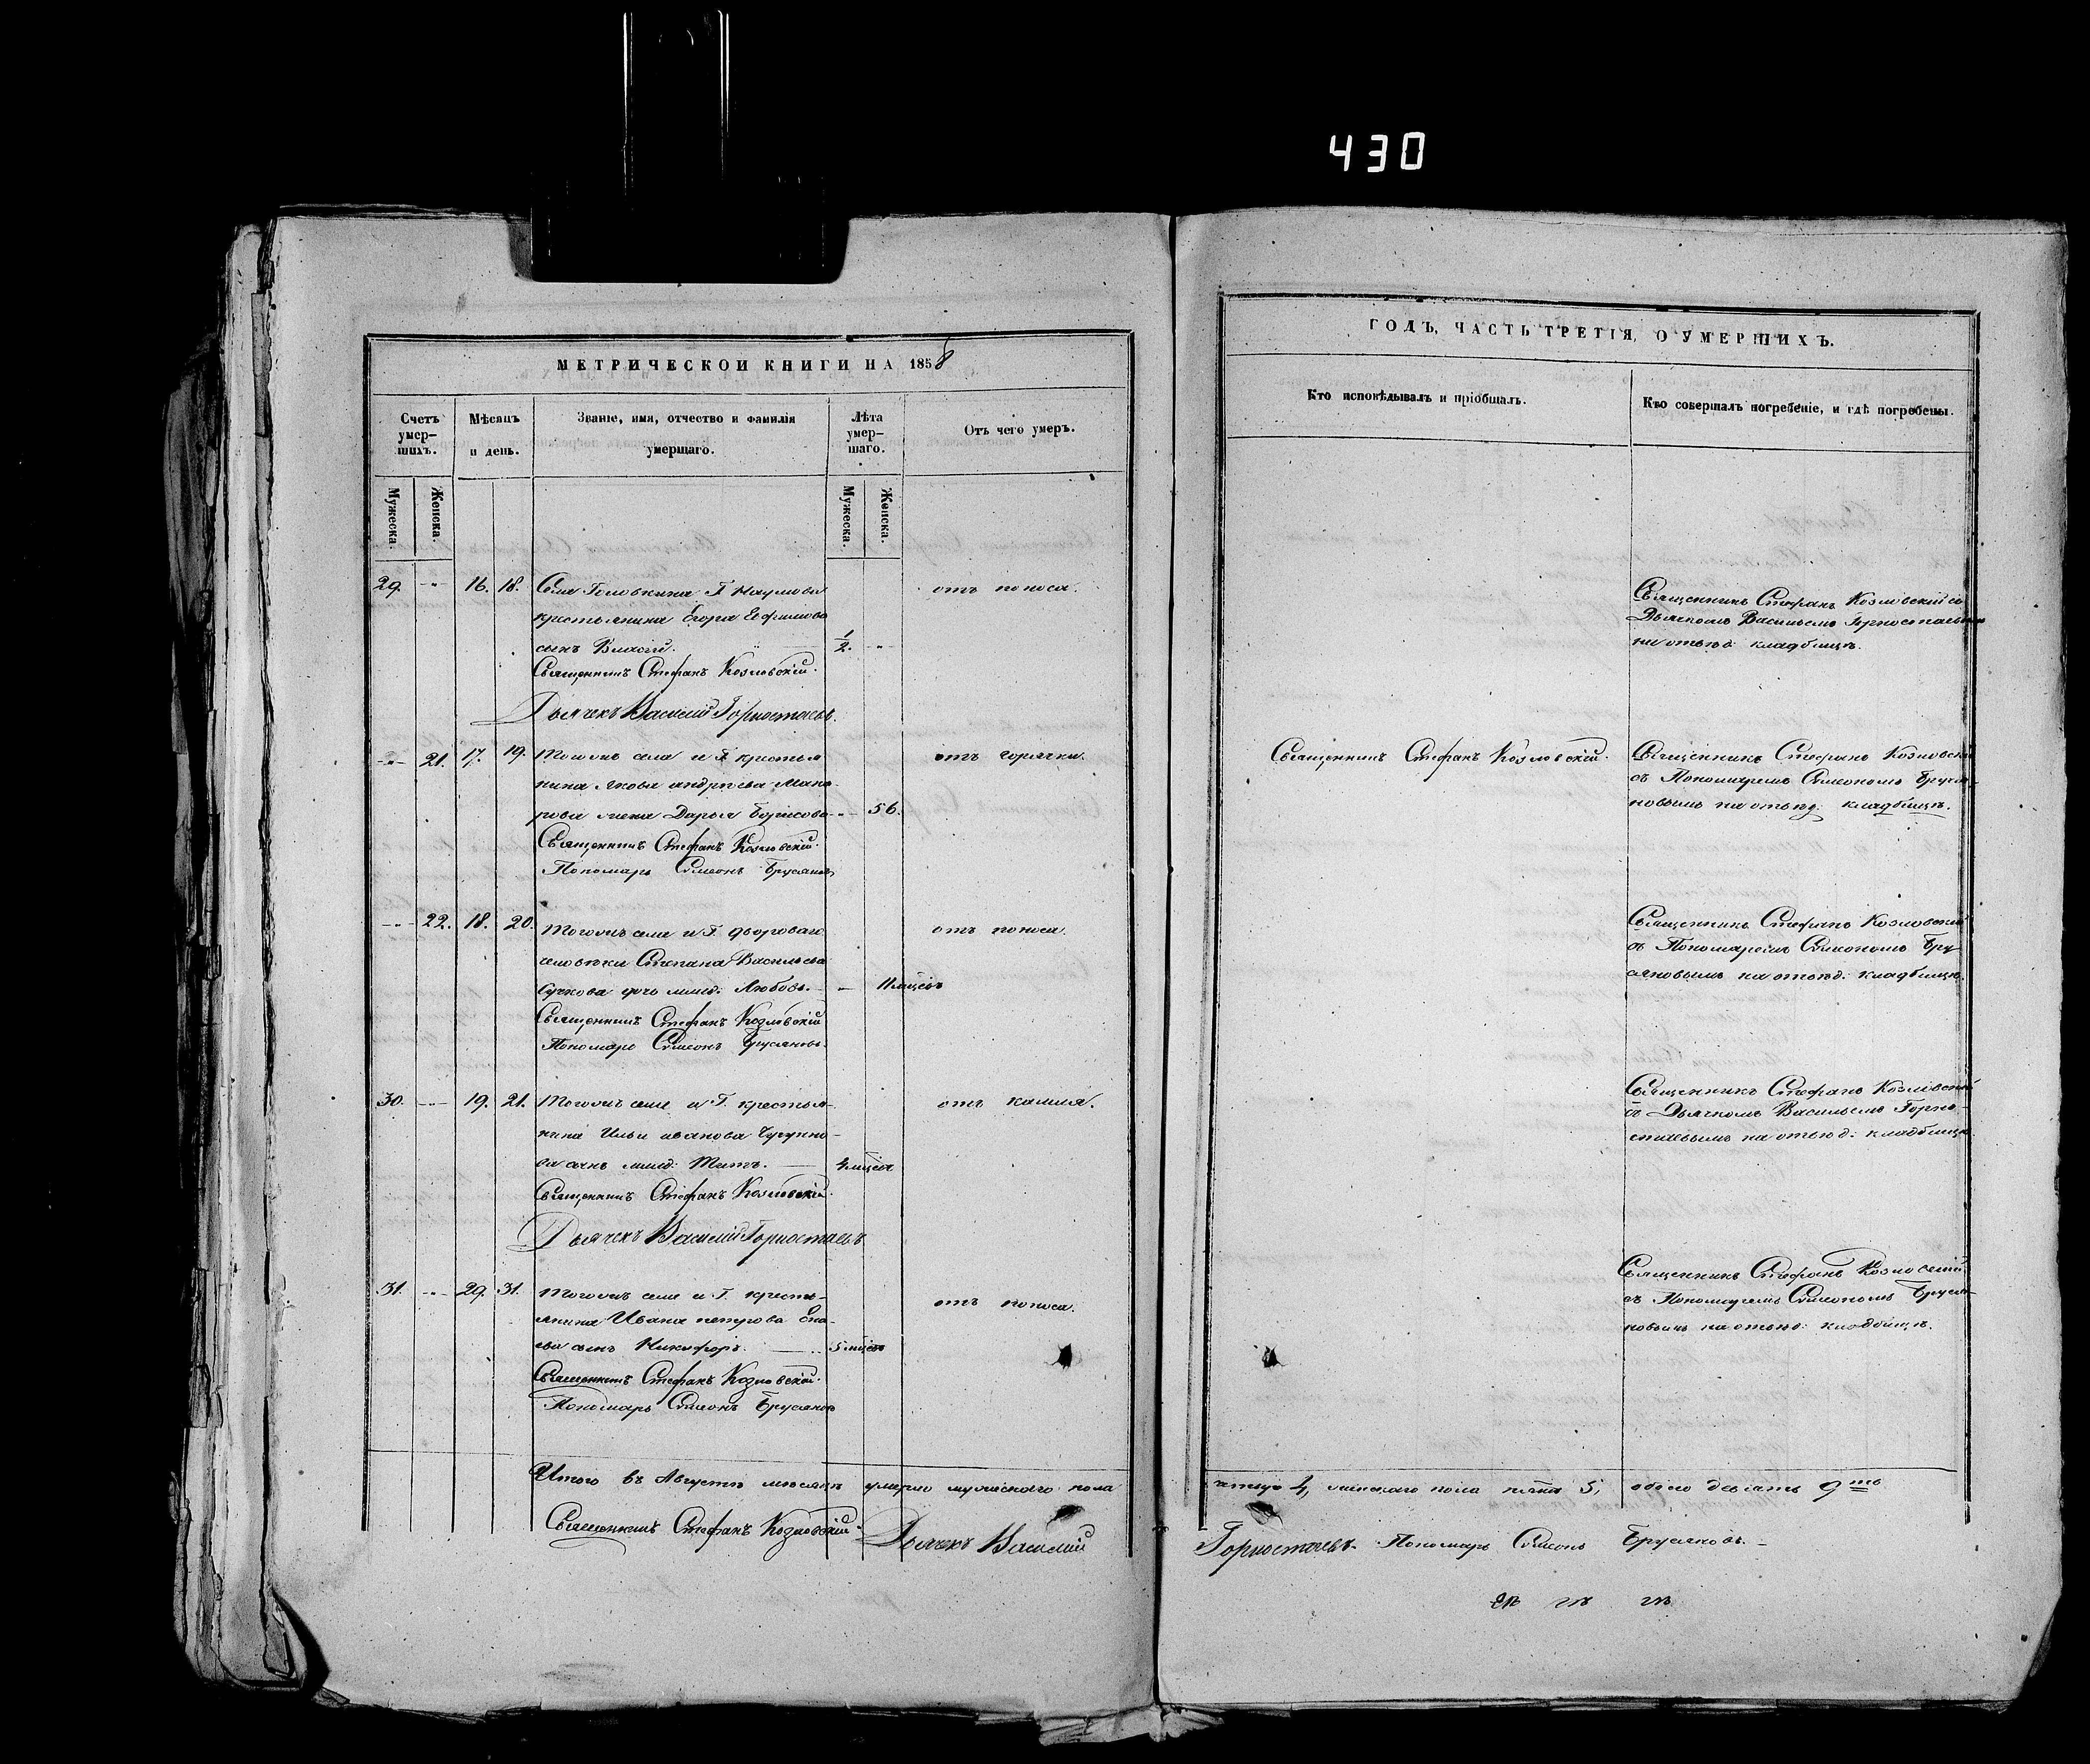 430
МЕТРИЧЕСКОЙ КНИГИ НА 1858
Счетъ умер-шихъ.
Мѣсяцъ и день.
Званіе, имя, отчество и фамилія умершаго.
Лѣта умер-шаго.
Отъ чего умеръ.
Мужеска.
Женска.
Мужеска.
Женска.
29. -"- 16. 18. Села Головкина Г. Наумова отъ поноса.
крестьянина Егора Ефимова
сынъ Власій. 1/2. -"-
Священникъ Стефанъ Козловскій.
Дьячекъ Василій Горностаевъ.
-"- 21. 17. 19. Тогожъ села и Г. крестья отъ горячки.
нина Якова андреева Мака-
рова жена Дарья Борисова -"- 56.
Священникъ Стефанъ Козловскій.
Пономарь Симеонъ Брусяновъ
-"- 22. 18. 20. Тогожъ села и Г. двороваго отъ поноса.
человѣка Степана Васильева
Сучкова дочь млад: Любовь. - 11 мцовъ
Священникъ Стефанъ Козловскій
Пономарь Симеонъ Брусяновъ.
30. -"- 19. 21. Тогожъ села и Г. крестья- отъ кашля.
нина Ильи иванова Чугуно-
ва сынъ млад: Титъ. 4 мцса
Священникъ Стефанъ Козловскій.
Дьячекъ Василій Горностаевъ
31. -"- 29. 31. Тогожъ села и Г. кресть- отъ поноса.
янина Ивана петрова
сынъ Никифоръ. 5 мцовъ
Священникъ Стефанъ Козловскій.
Пономарь Симеонъ Брусяновъ
Итого въ Августѣ мѣсяцѣ умерло мужескаго пола
Священникъ Стефанъ Козловскій. Дьячекъ Василій
ГОДЪ, ЧАСТЬ ТРЕТІЯ, О УМЕРШИХЪ.
Кто исповѣдывалъ и пріобщалъ.
Кто совершалъ погребеніе, и гдѣ погребены.
Священникъ Стефанъ Козловскій съ
Дьячкомъ Васильемъ Горностаевымъ
на отвѣд: кладбищѣ.
Священникъ Стефанъ Козловскій.
Священникъ Стефанъ Козловскій
съ Пономаремъ Симеономъ Бруся-
новымъ на отвѣд: кладбищѣ.
Священникъ Стефанъ Козловскій
съ Пономаремъ Симеономъ Бру-
сяновымъ на отвѣд: кладбищѣ.
Священникъ Стефанъ Козловскій
съ Дьячкомъ Васильемъ Горно-
стаевымъ на отвѣд: кладбищѣ.
Священникъ Стефанъ Козловскій
съ Пономаремъ Симеономъ Бруся-
новымъ на отвѣд: кладбищѣ.
четыре 4, женскаго пола пять 5, обоего девять 9ть
Горностаевъ. Пономарь Симеонъ Брусяновъ.